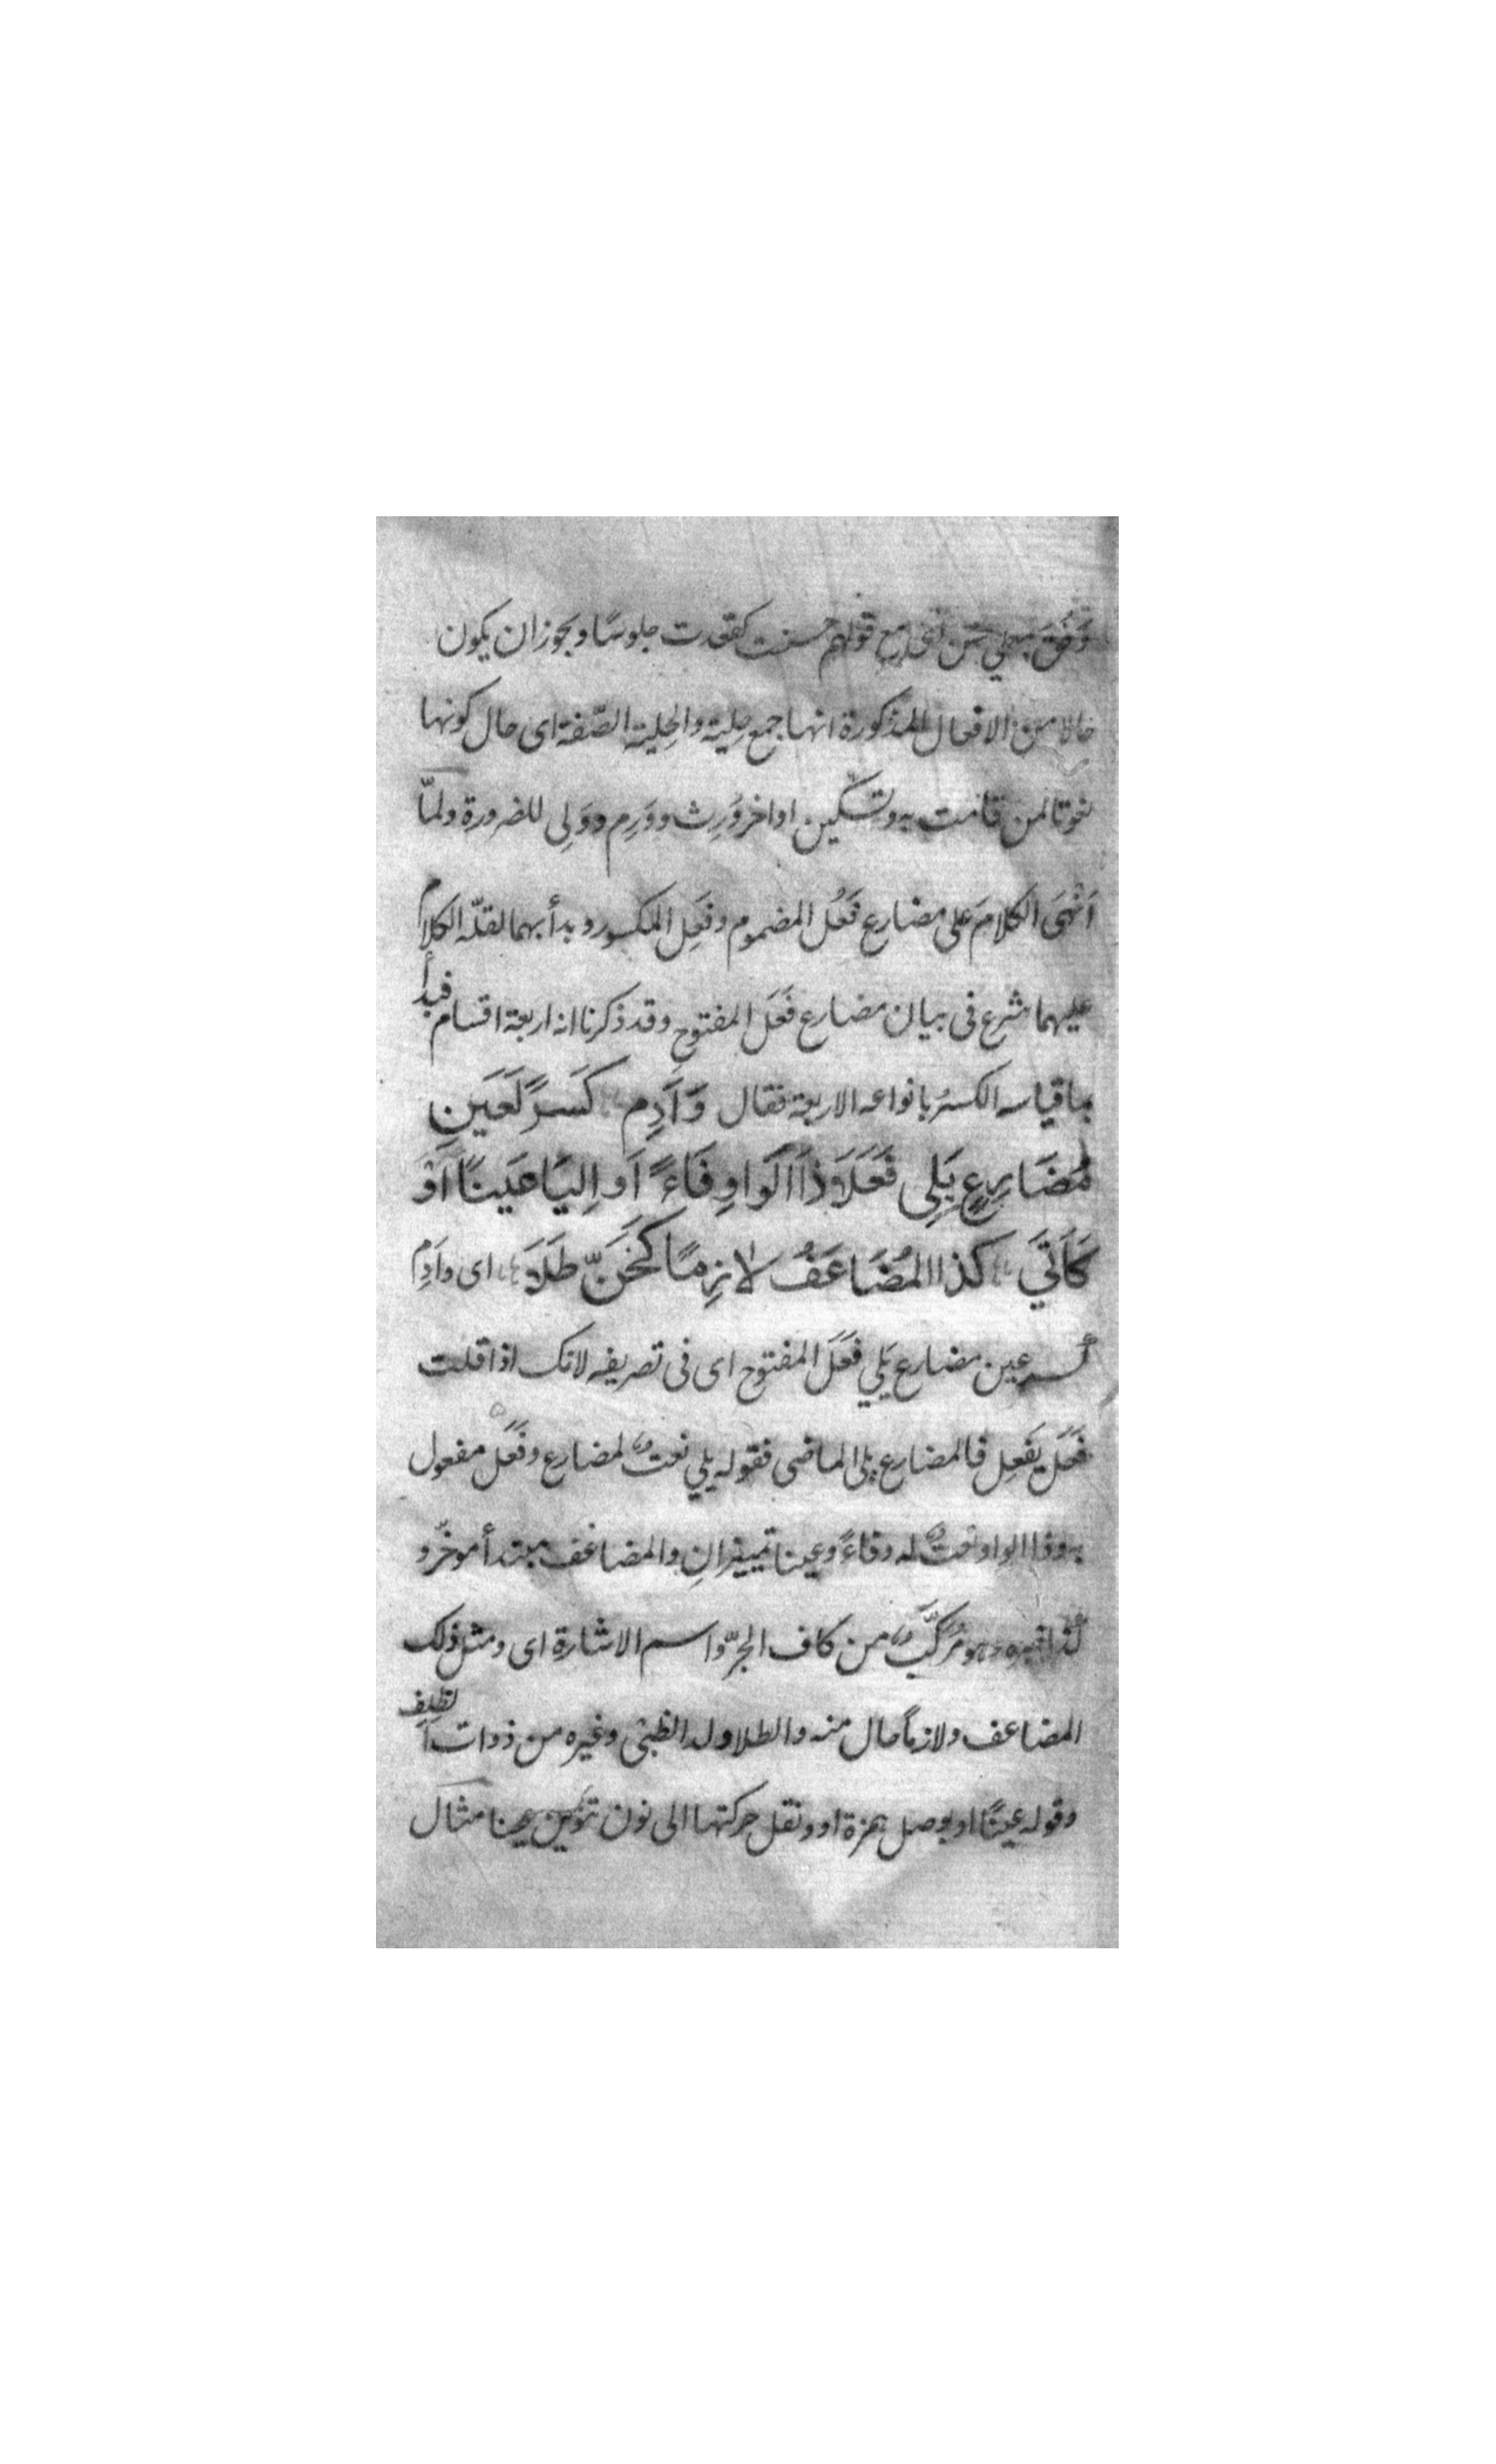 وفق بمعنى حسن اى مع قولهم حسنت كقعدت جلوسًا ويجوز ان يكون
حالا من الافعال المذكورة انها جمع حِلية والحِلية الصّفة اى حال كونها
نعوتا لمن قامت به وتسكين اواخر وَرِث ووَرِم ووَلِى للضرورة ولمّا
اَنْهَى الكلامَ على مضارع فَعُل المضموم وفَعِل المكسور وبدأ بهما لقلّة الكلام
عليهما شرع فى بيان مضارع فَعَل المفتوح وقد ذكرنا انه اربعة اقسام فبدأ
بما قياسه الكسرُ بانواعه الاربعة فقال وَاَدِم كَسَرً لَعَينِ
مُضَارِعٍ يَلِى فَعَلَ ذَا الَوَاوِ فَاءً اَو اِليَا عَينًا اَوْ
كَاَتَى كذا المُضَاعَفُ لازِمًا كَحَنَّ طَلَا اى واَدِم
كسر عين مضارع يَلي فَعَلَ المفتوح اى فى تصريفه لانك اذا قلت
فَعَل يَفعِل فالمضارع يلى الماضى فقوله يلي نعتٌ لمضارع وفَعَل مفعول
به وذا الواو نعتٌ له وفاءً وعينا تمييزانِ والمضاعَف مبتدأ موخّر و
كذا خبره وهو مُركَّبٌ من كاف الجرّ واسم الاشارة اى ومثل ذلك
المضاعف ولازمًا حال منه والطلا ولد الظبى وغيره من ذوات الظلف
وقوله عينًا او بوصل همزة او ونقل حركتها الى نون تنوين عينا مثال